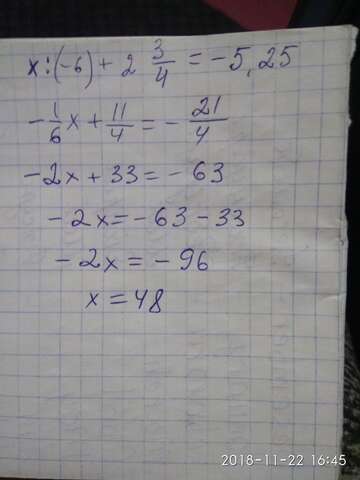 x:(-6) + 2 3/4 = -5,25
-1/6 x + 11/4 = -21/4
-2x + 33 = -63
-2x = -63 - 33
-2x = -96
x = 48
2018-11-22 16:45